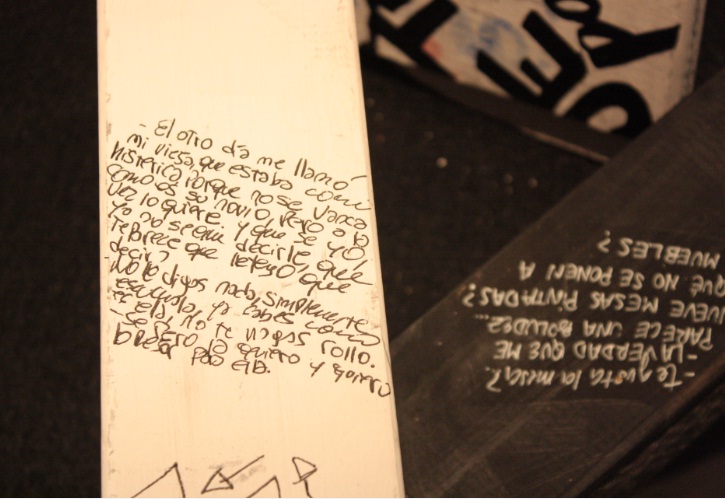 - El otro día me llamó
mi vieja, que estaba como
histerica porque no se
como es su novio, pero a la
vez lo quiere y que se yo
yo no se que decirle, que
te parece que le tengo que
decir?
- No le digas nada, simplemente
escuchala, ya sabes como
es ella, no te hagas rollo.
- Se pero la quiero y quiero
-te gusta la mesa?
-LA VERDAD QUE ME
PARECE UNA BOLUDEZ...
UEVE MESAS PINTADAS?
QUÉ NO SE PONEN A
MUEBLES?